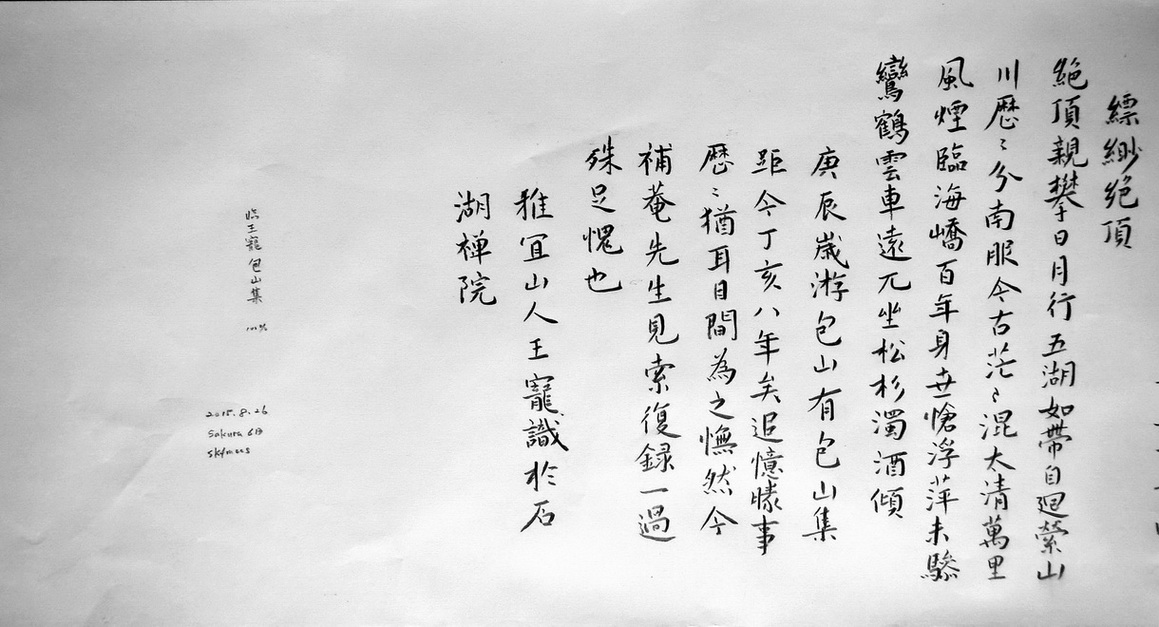 縹緲絕頂
絕頂親攀日月行五湖如帶自迴縈山
川歷〻分南服今古茫〻混太清萬里
風煙臨海嶠百年身世愴浮萍未驂
鸞鶴雲車遠兀坐松杉濁酒傾
庚辰歲游包山有包山集
距今丁亥八年矣追憶曚事
歷〻猶耳目間為之憮然今
補菴先生見索復録一過
殊足愧也
雅宜山人王寵識於石
湖禅院
临王寵包山集
2015.8.26
Sakura